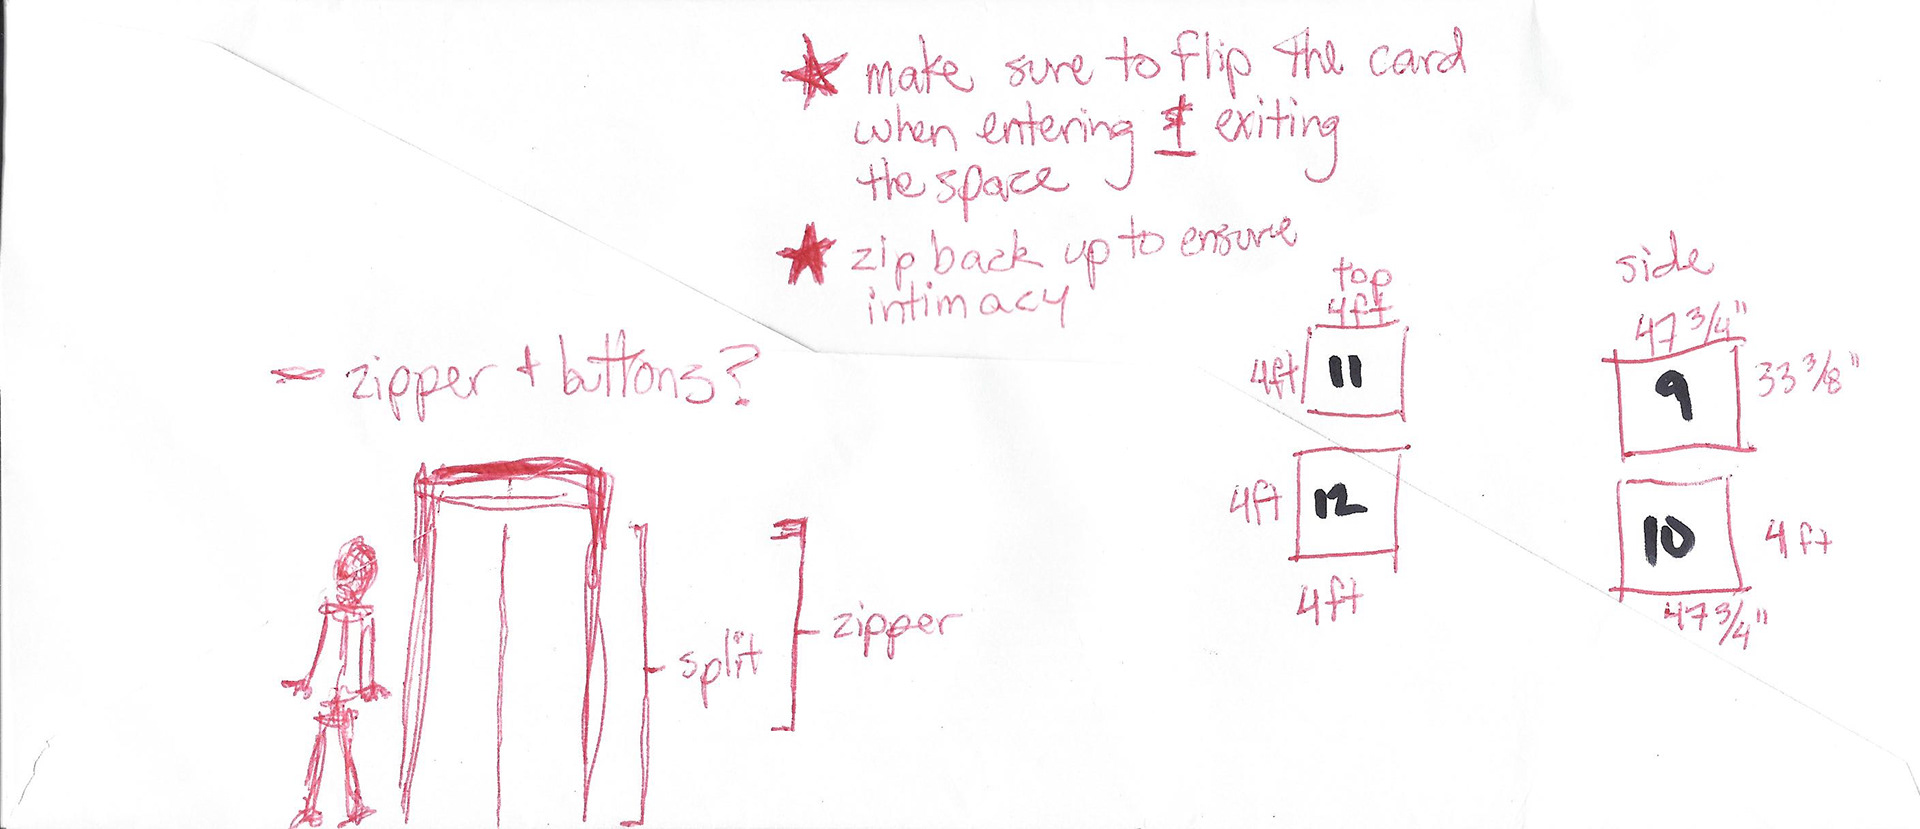 ★ make sure to flip the card
when entering + exiting
the space
★ zip back up to ensure
intimacy
- zipper + buttons?
split
zipper
top
4ft
4ft 11
4ft 12
4ft
side
47 3/4"
9 33 3/8"
10 4ft
47 3/4"